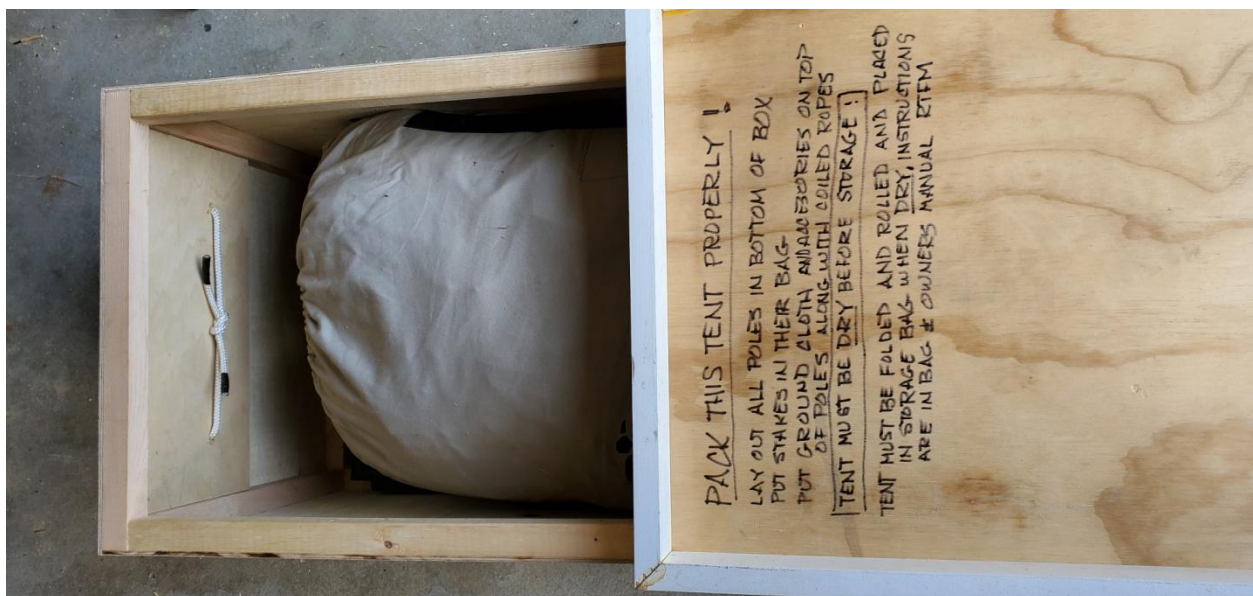 PACK THIS TENT PROPERLY!
LAY OUT ALL POLES IN BOTTOM OF BOX
PUT STAKES IN THEIR BAG
PUT GROUND CLOTH AND ACCESSORIES ON TOP
OF POLES ALONG WITH COILED ROPES
TENT MUST BE DRY BEFORE STORAGE!
TENT MUST BE FOLDED AND ROLLED AND PLACED
IN STORAGE BAG WHEN DRY, INSTRUCTIONS
ARE IN BAG & OWNERS MANUAL RTFM